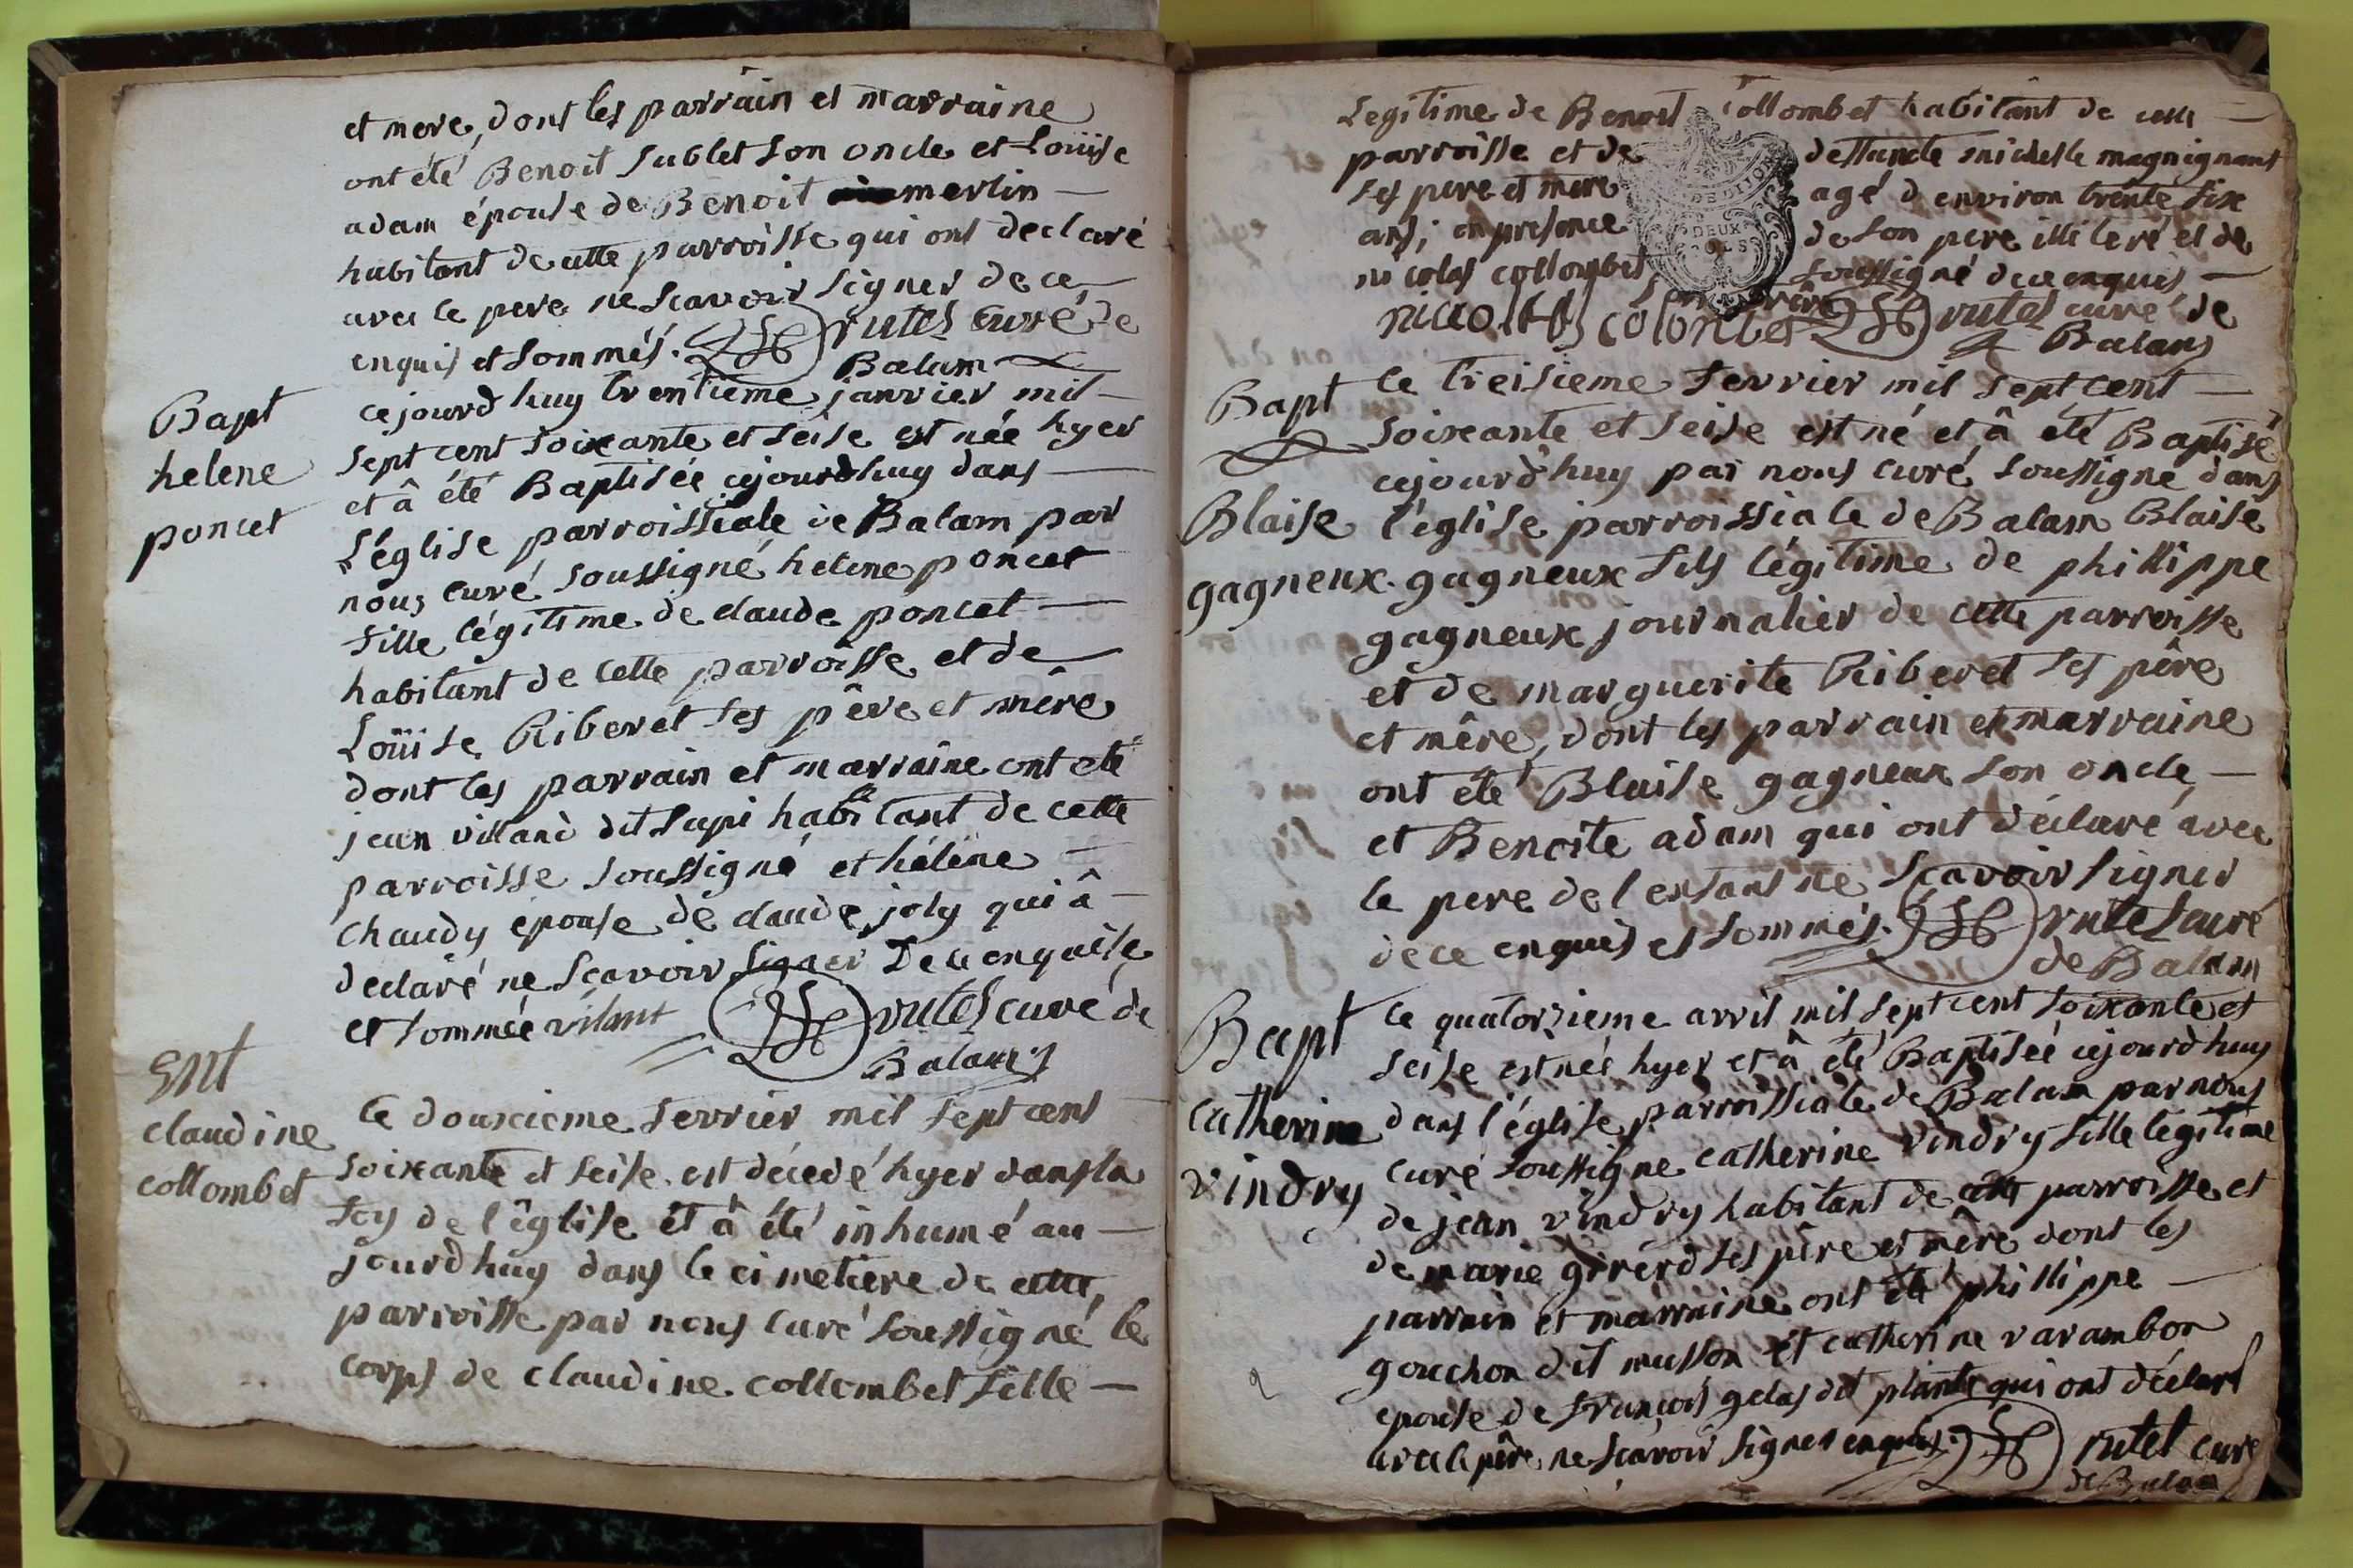 et mere, dont les parrain et marraine
ont été Benoit sublet son oncle et Loüise
adam épouse de Benoit merlin
habitant de cette parroisse qui ont declaré
avec le pere ne scavoir signer de ce
enquis et sommés. rutet curé de
Balam
Bapt
helene
poncet
cejourdhuy trentieme janvier mil
sept cent soixante et seise est née hyer
et â été Baptisée cejourdhuy dans
l'église parroissiale de Balam par
nous curé soussigné helene poncet
fille légitime de claude poncet
habitant de cette parroisse et de
Loüise Riberet ses pêre et mêre
dont les parrain et marraine ont été
jean villand dit Lupi habitant de cette
parroisse soussigné et hélène
chaudy epouse de claude joly qui â
declaré ne scavoir signer De ce enquise
et sommée vilant rutet curé de
Balam
Ent
claudine
collombet
le douxieme fevrier mil sept cent
soixante et seise est décedé hyer dans la
foy de l'église et â été inhumé au
jourdhuy dans le cimetiere de cette
parroisse par nous curé soussigné le
corps de claudine collombet fille
Legitime de Benoit collombet habitant de cette
parroisse et de deffuncte michelle magnignant
ses pere et mere agé d'environ trente six
ans, en presence de son pere illiteré et de
nicolas collombet son frère soussigné de ce enquis
DE DIJON
DEUX
SOLS
nicolas colonbet rutet curé de
Balam
Bapt
Blaise
gagneux
le treisieme fevrier mil sept cent
soixante et seise est né et â été Baptisé
cejourd'huy par nous curé soussigne dans
l'église parroissiale de Balam Blaise
gagneux fils légitime de phillippe
gagneux journalier de cette parroisse
et de marguerite Riberet ses pêre
et mêre, dont les parrain et marraine
ont été Blaise gagneux son oncle
et Benoite adam qui ont déclaré avec
le pere de l'enfant ne scavoir signer
de ce enquis et sommés. rutet curé
de Balam
Bapt
catherine
vindry
le quatorzieme avril mil sept cent soixante et
seise est née hyer et â été Baptisée cejourdhuy
dans l'église parroissiale de Balam par nous
curé soussigne catherine vindry fille légitime
de jean vindry habitant de cette parroisse et
de marie girerd ses pêre et mêre dont les
parrain et marraine ont été phillippe
gouchon dit musson et catherine varambon
epouse de françois gelas dit plante qui ont déclaré
avec le pêre ne scavoir signer enquis. rutet curé
de Balam